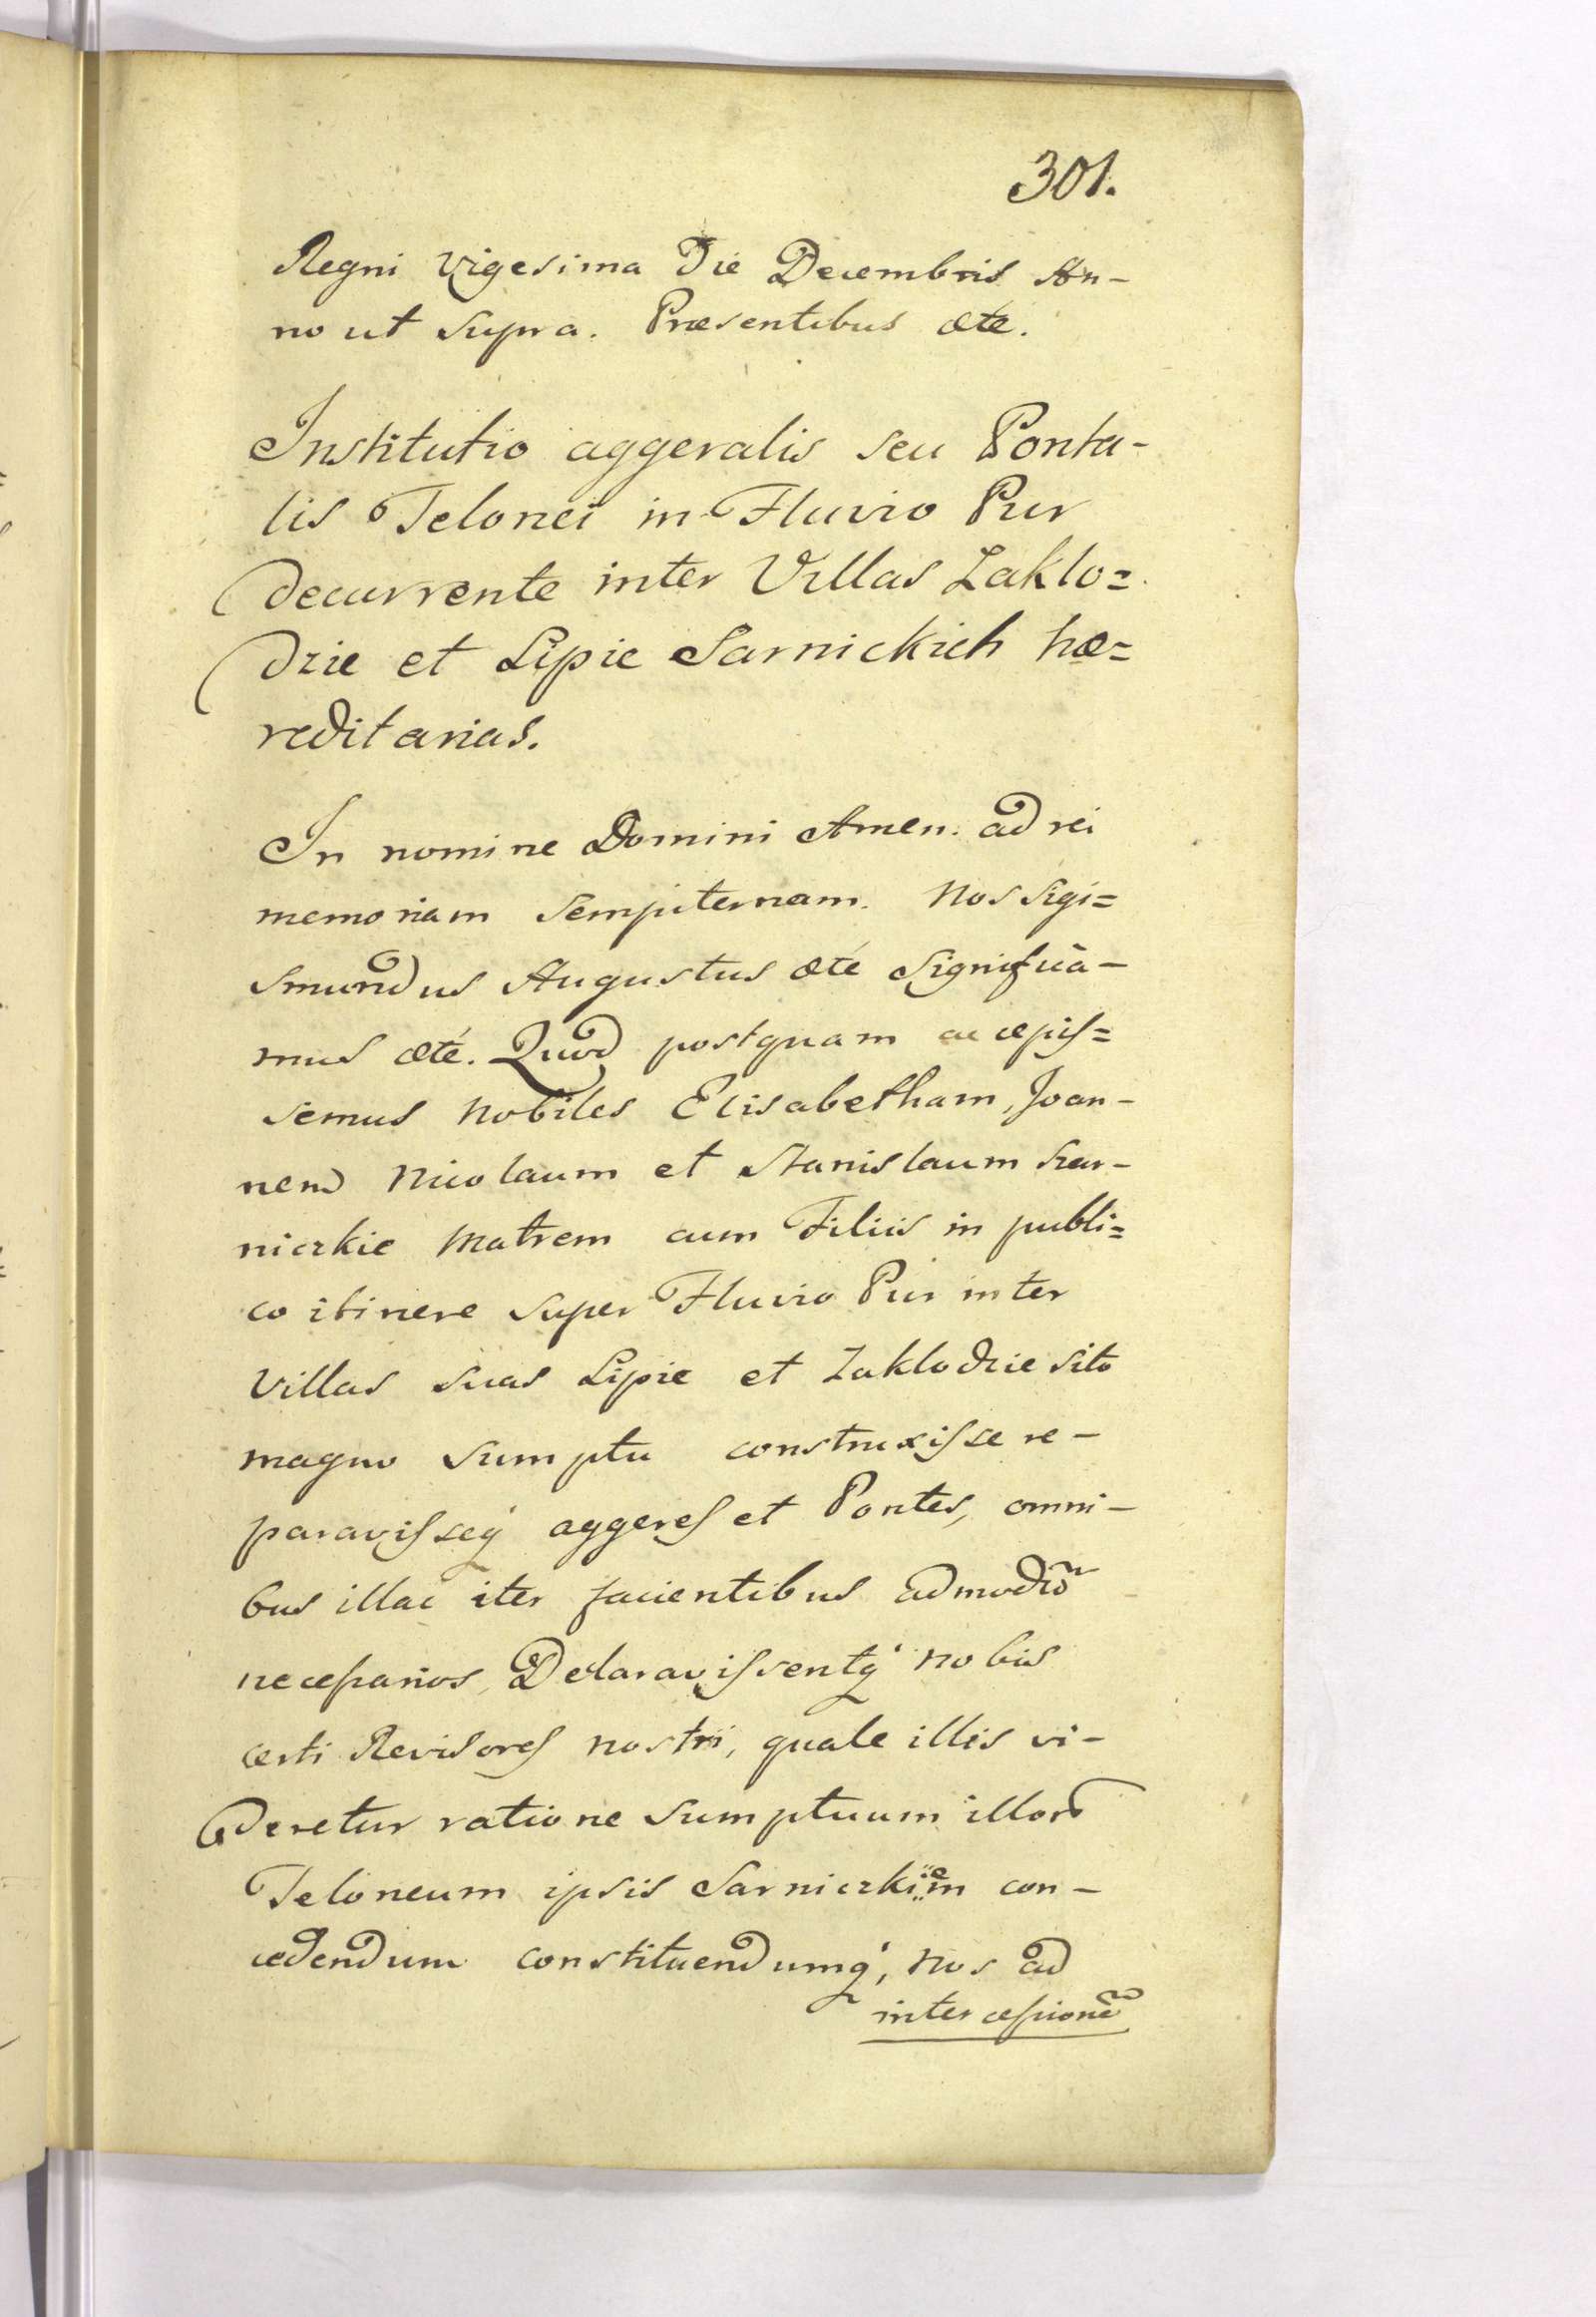 301.
Regni vigesima Die Decembris An-
no ut supra. Præsentibus &te.
Institutio aggeralis seu Ponta-
lis Telonei in Fluvio Pur
decurrente inter Villas Zaklo=
dzie et Lipie Sarnickich hæ=
reditarias.
In nomine Domini Amen. ad rei
memoriam sempiternam. Nos Sigi=
smundus Augustus &te significa-
mus &te. Quod postquam accepis=
semus Nobiles Elisabetham, Joan-
nem Nicolaum et Stanislaum Szar-
niczkie Matrem cum Filiis in publi=
co itinere super Fluvio Pur inter
Villas suas Lipie et Zaklodzie sito
magno sumptu construxisse re-
paravisseq́ aggeres et Pontes, omni-
bus illac iter facientibus admodũ
necessarios, Declaravissentq́ nobis
certi Revisores nostri, quale illis vi-
deretur ratione sumptuum illorũ
Teloneum ipsis Sarniczkiem con-
cedendum constituendumq́, nos ad
intercessionẽ